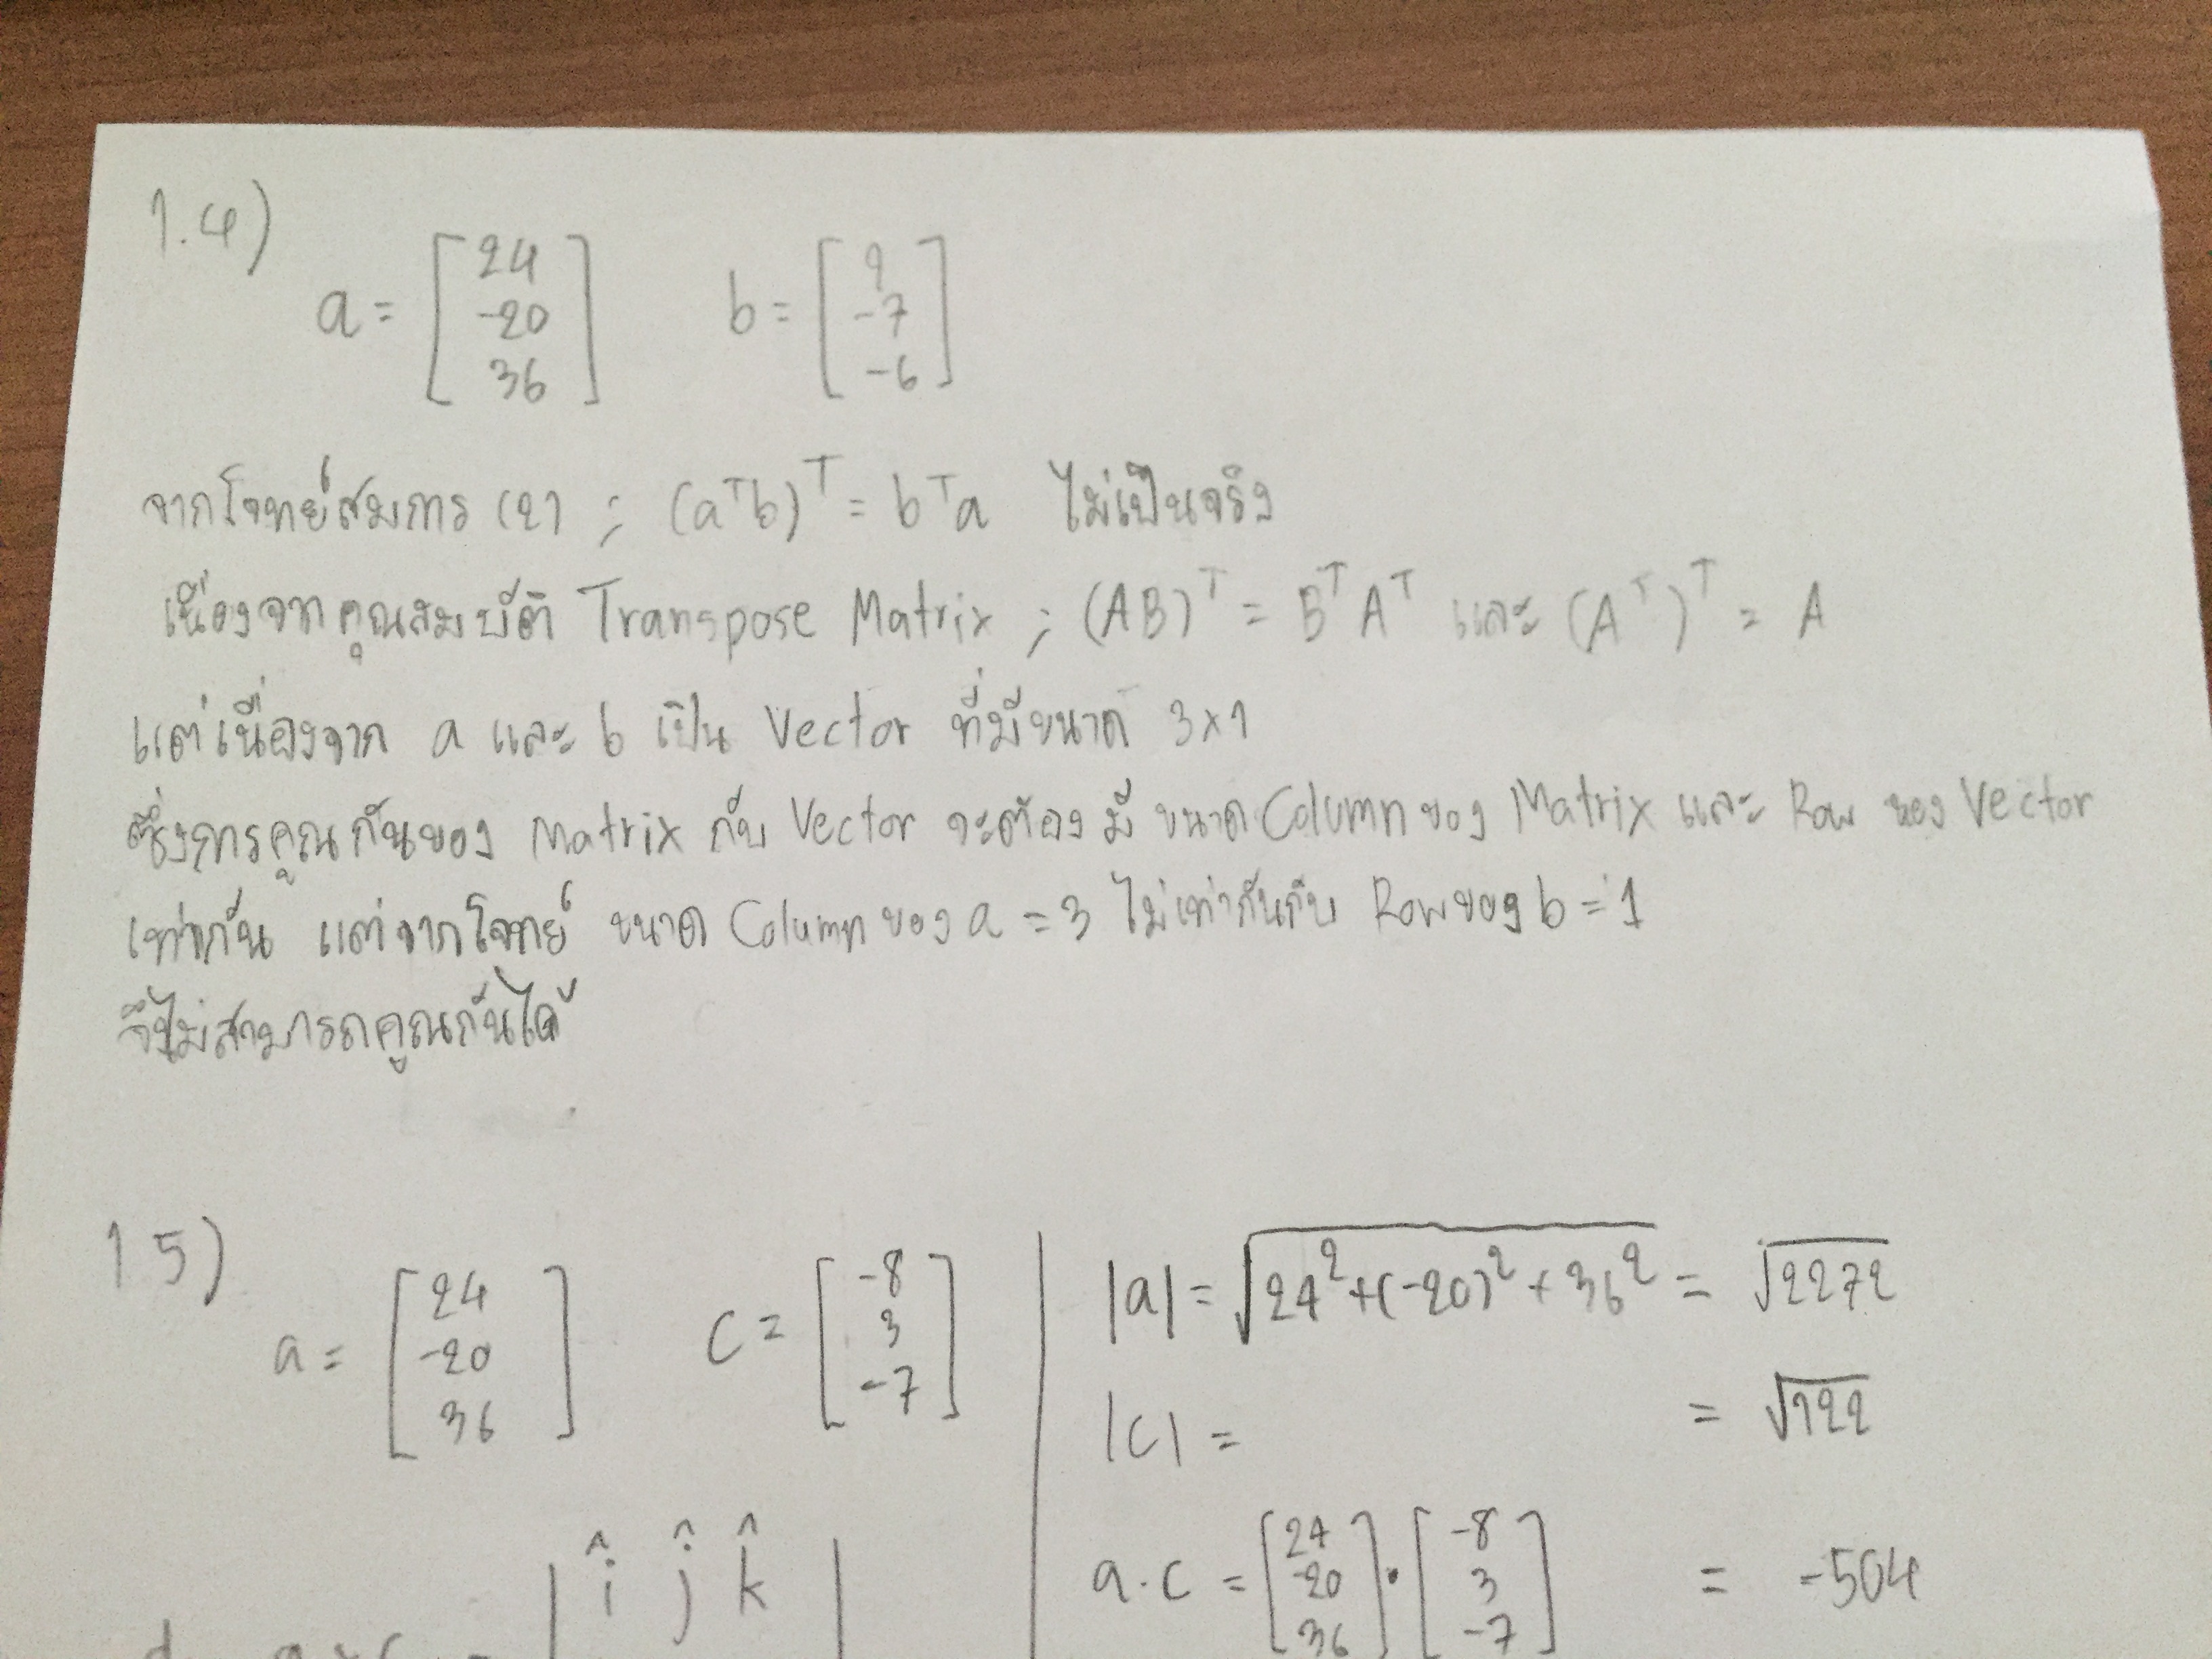 1.4)
a = [ 24 -20 36 ]   b = [ 9 -7 -6 ]
จากโจทย์สมการ (2) ; (aᵀb)ᵀ = bᵀa ไม่เป็นจริง
เนื่องจากคุณสมบัติ Transpose Matrix ; (AB)ᵀ = BᵀAᵀ และ (Aᵀ)ᵀ = A
แต่เนื่องจาก a และ b เป็น Vector ที่มีขนาด 3×1
ซึ่งการคูณกันของ Matrix กับ Vector จะต้องมี ขนาด Column ของ Matrix และ Row ของ Vector
เท่ากัน แต่จากโจทย์ ขนาด Column ของ a = 3 ไม่เท่ากันกับ Row ของ b = 1
จึงไม่สามารถคูณกันได้
1 5)
a = [ 24 -20 36 ]   c = [ -8 3 -7 ]
î ĵ k̂
|a| = √(24² + (-20)² + 36²) = √2272
|c| = = √122
a · c = [ 24 -20 36 ] · [ -8 3 -7 ] = -504